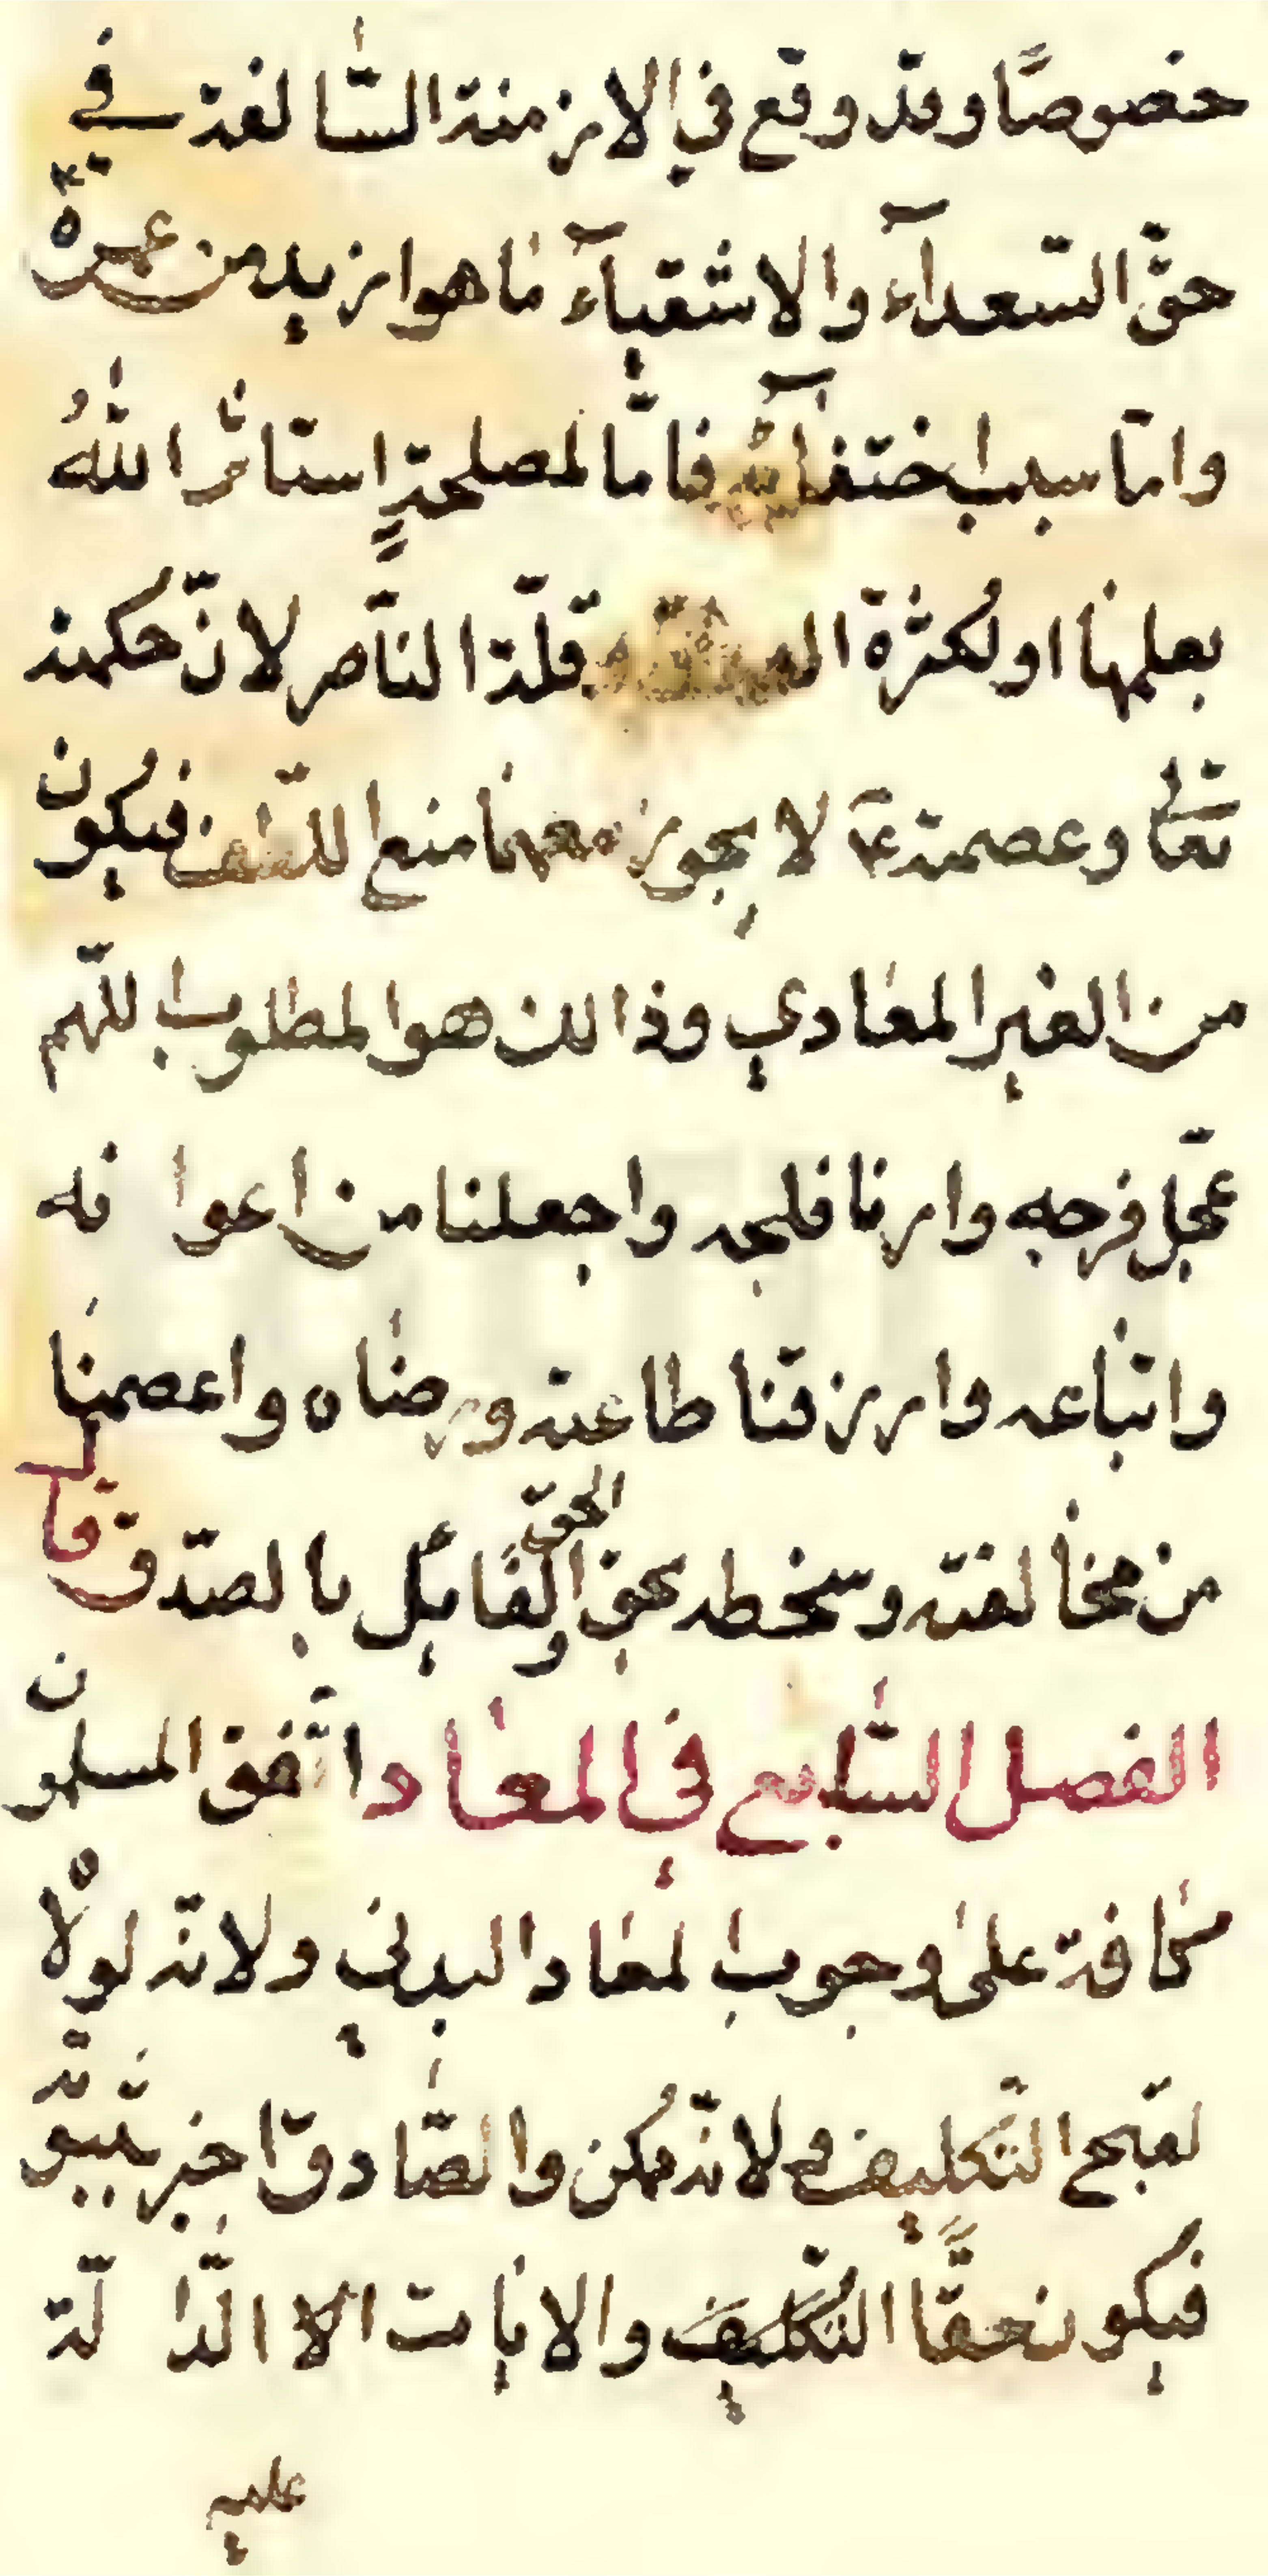 خصوصًا وقد وقع في الازمنة السّالفة في
حقّ السّعدآء والاشقيآء ما هو ازيد من عمره
وامّا سبب اختفآئه فامّا لمصلحةٍ استاثر اللهُ
بعلمها او لكثرة قلّة النّاصر لانّ حكمته
تعٰا وعصمته ع لا يجوز معهما منع اللّطف فيكون
من الغير المعادي وذالك هو المطلوب اللّهم
عجّل فرجه وارنا فلجه واجعلنا من اعوانه
واتباعه وارزقنا طاعته ورضاه واعصمنا
من مخالفته وسخطه بحق الحقّ والقائل بالصّدق قال
الفصل السّابع في المعاد اتّفق المسلمون
كافة على وجوب المعاد البدني ولانّه لولاه
لقبح التّكليف ولانّه ممكن والصّادق اخبر بثبوته
فيكون حقًّا التكليف والايات الا الدّالّة
عليه